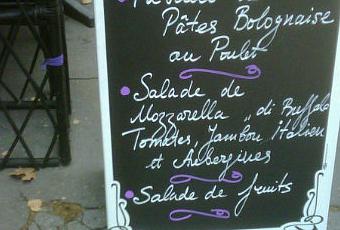 Pâtes Bolognaise
au Poulet
Salade de
Mozzarella "di Buffala
Tomates, Jambon Italien
et Aubergines
Salade de fruits